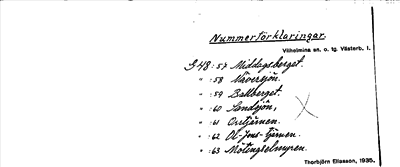 Nummerförklaringar.
Vilhelmina sn. o. tg. Västerb. l.
948:57 Middagsberget.
" :58 Näversjön.
" :59 Bakberget.
" :60 Sandsjön,
" :61 Orrtjärnen.
" :62 Ol-Jons-tjärnen.
" :63 Mötingselmyren.
Thorbjörn Eliasson, 1935.